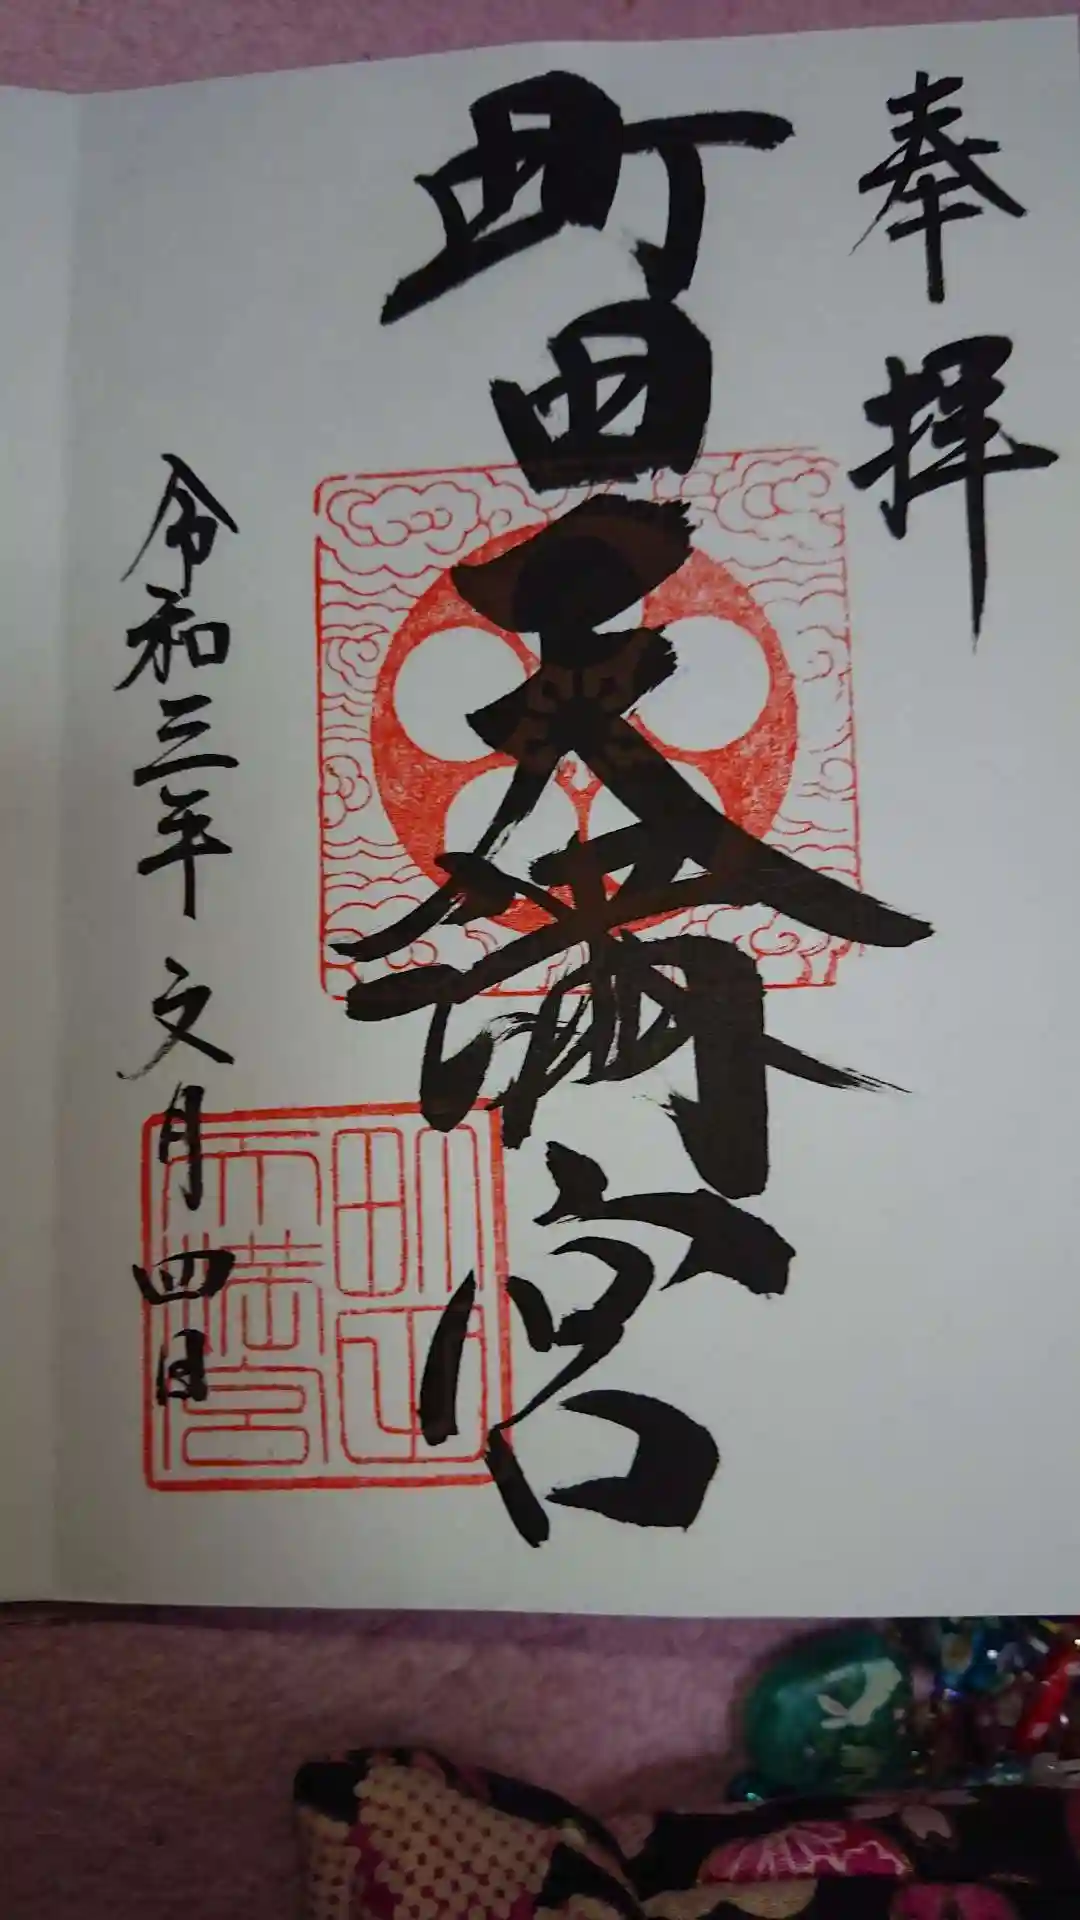 奉拝
町田天満宮
令和三年文月四日
町田
天満宮